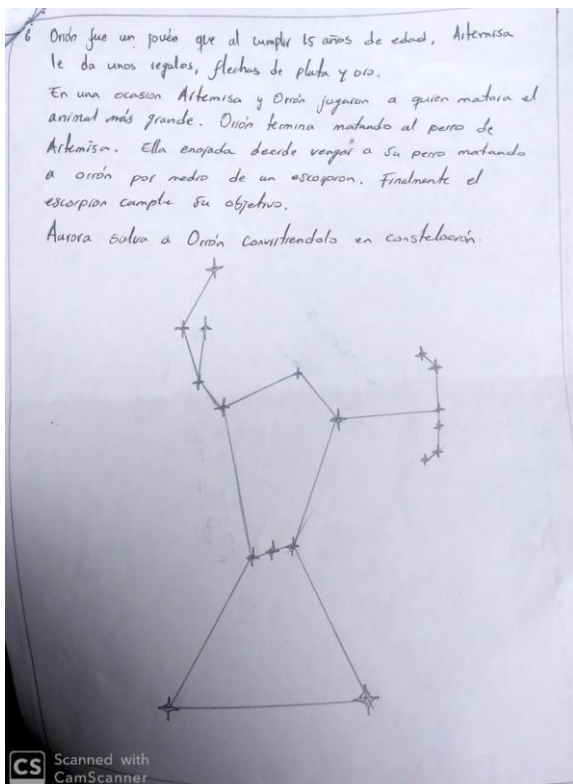 6 Orión fue un jovén que al cumplir 15 años de edad, Artemisa
le da unos regalos, flechas de plata y oro.
En una ocasion Artemisa y Orión jugaron a quien matara el
animal más grande. Orión termina matando al perro de
Artemisa. Ella enojada decide vengar a su perro matando
a orión por medio de un escorpion. Finalmente el
escorpion cumple su objetivo.
Aurora salva a Orión convirtiendolo en constelación.
CS Scanned with
CamScanner